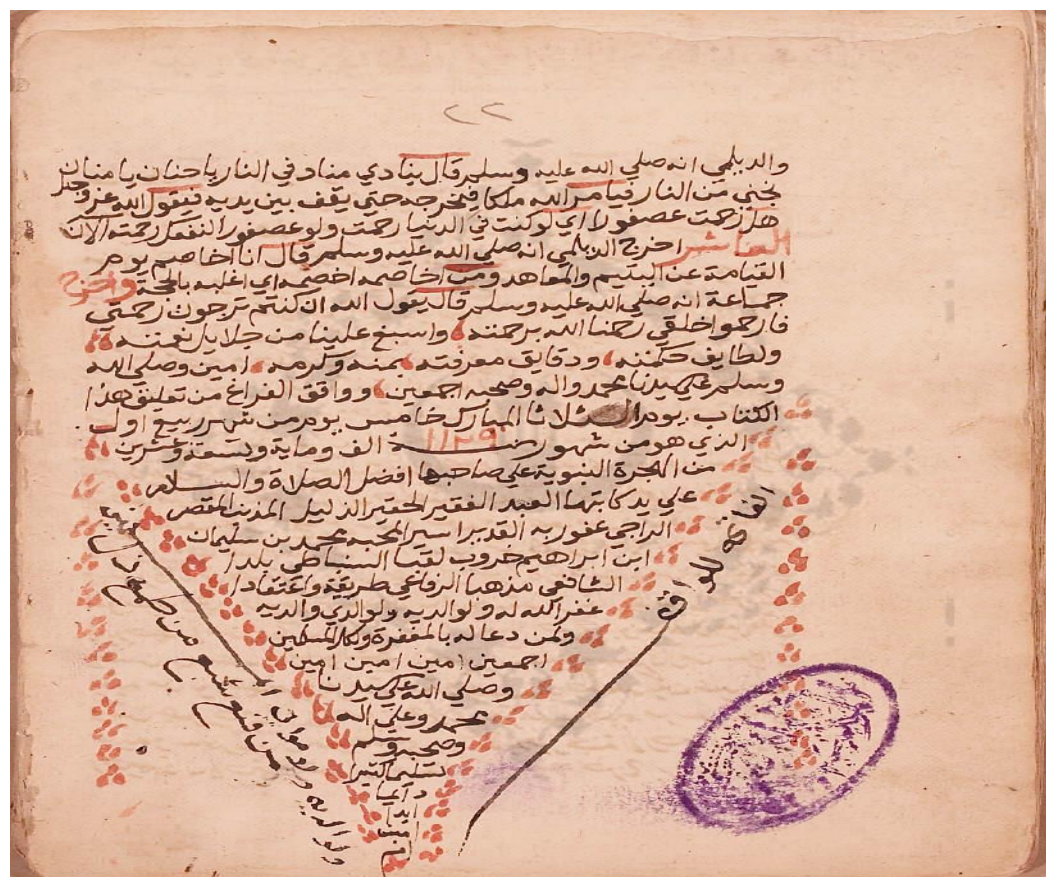 ٢٢
والديلمي انه صلي الله عليه وسلم قال ينادي مناد في النار يا حنان يا منان
نجني من النار فيامر الله ملكا فيخرجه حتي يقف بين يديه فيقول الله عز وجل
هل رحمت عصفورا اي لو كنت في الدنيا رحمت ولو عصفورا لنفعك رحمته الآن
العاشر اخرج الديلمي انه صلي الله عليه وسلم قال انا اخاصم يوم
القيامة عن اليتيم والمعاهد ومن اخاصمه اخصمه اي اغلبه بالحجة واخرج
جماعة انه صلي الله عليه وسلم قال يقول الله ان كنتم ترجون رحمتي
فارحموا خلقي رحمنا الله برحمته واسبغ علينا من جلايل نعمته
ولطايف حكمته ودقايق معرفته بمنه وكرمه امين وصلي الله
وسلم علي سيدنا محمد واله وصحبه اجمعين ووافق الفراغ من تعليق هذا
الكتاب يوم الثلاثا المبارك خامس يوم من شهر ربيع اول
الذي هو من شهور سنة ١١٢٩ الف وماية وتسعة وعشرين
من الهجرة النبوية علي صاحبها افضل الصلاة والسلام
علي يد كاتبها العبد الفقير الحقير الذليل المذنب المقصر
الراجي عفو ربه القدير اسير المحبه محمد بن سليمان
ابن ابراهيم خروب لقبا السنباطي بلدا
الشافعي مذهبا الرفاعي طريقة واعتقادا
غفر الله له ولوالديه ولوالدي والديه
ولمن دعا له بالمغفرة ولكل المسلمين
اجمعين امين امين امين
وصلي الله علي سيدنا
محمد وعلي اله
وصحبه وسلم
تسليما كثيرا
دايما
ابدا
امين
تم
من قنع شبع من طمع ذل